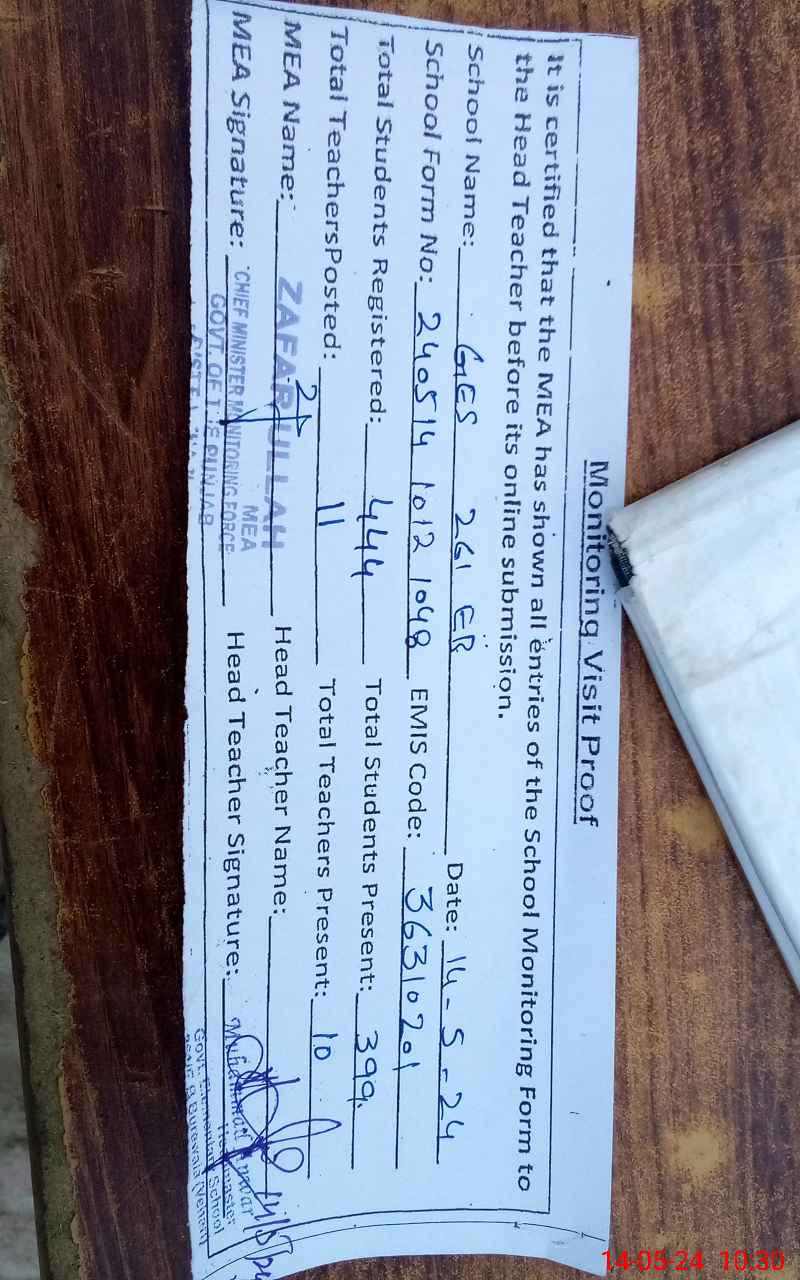 Monitoring Visit Proof
It is certified that the MEA has shown all entries of the School Monitoring Form to
the Head Teacher before its online submission.
School Name: GES 261 EB Date: 14-5-24
School Form No: 240514 1012 1048 EMIS Code: 36310201
Total Students Registered: 444 Total Students Present: 399
Total TeachersPosted: 11 Total Teachers Present: 10
MEA Name: ZAFAR ULLAH Head Teacher Name:
MEA
MEA Signature: CHIEF MINISTER MONITORING FORCE Head Teacher Signature: Muhammad Anwar
GOVT. OF THE PUNJAB
Headmaster
Govt. Elementary School
Burewala (Vehari)
14-05-24 10:30